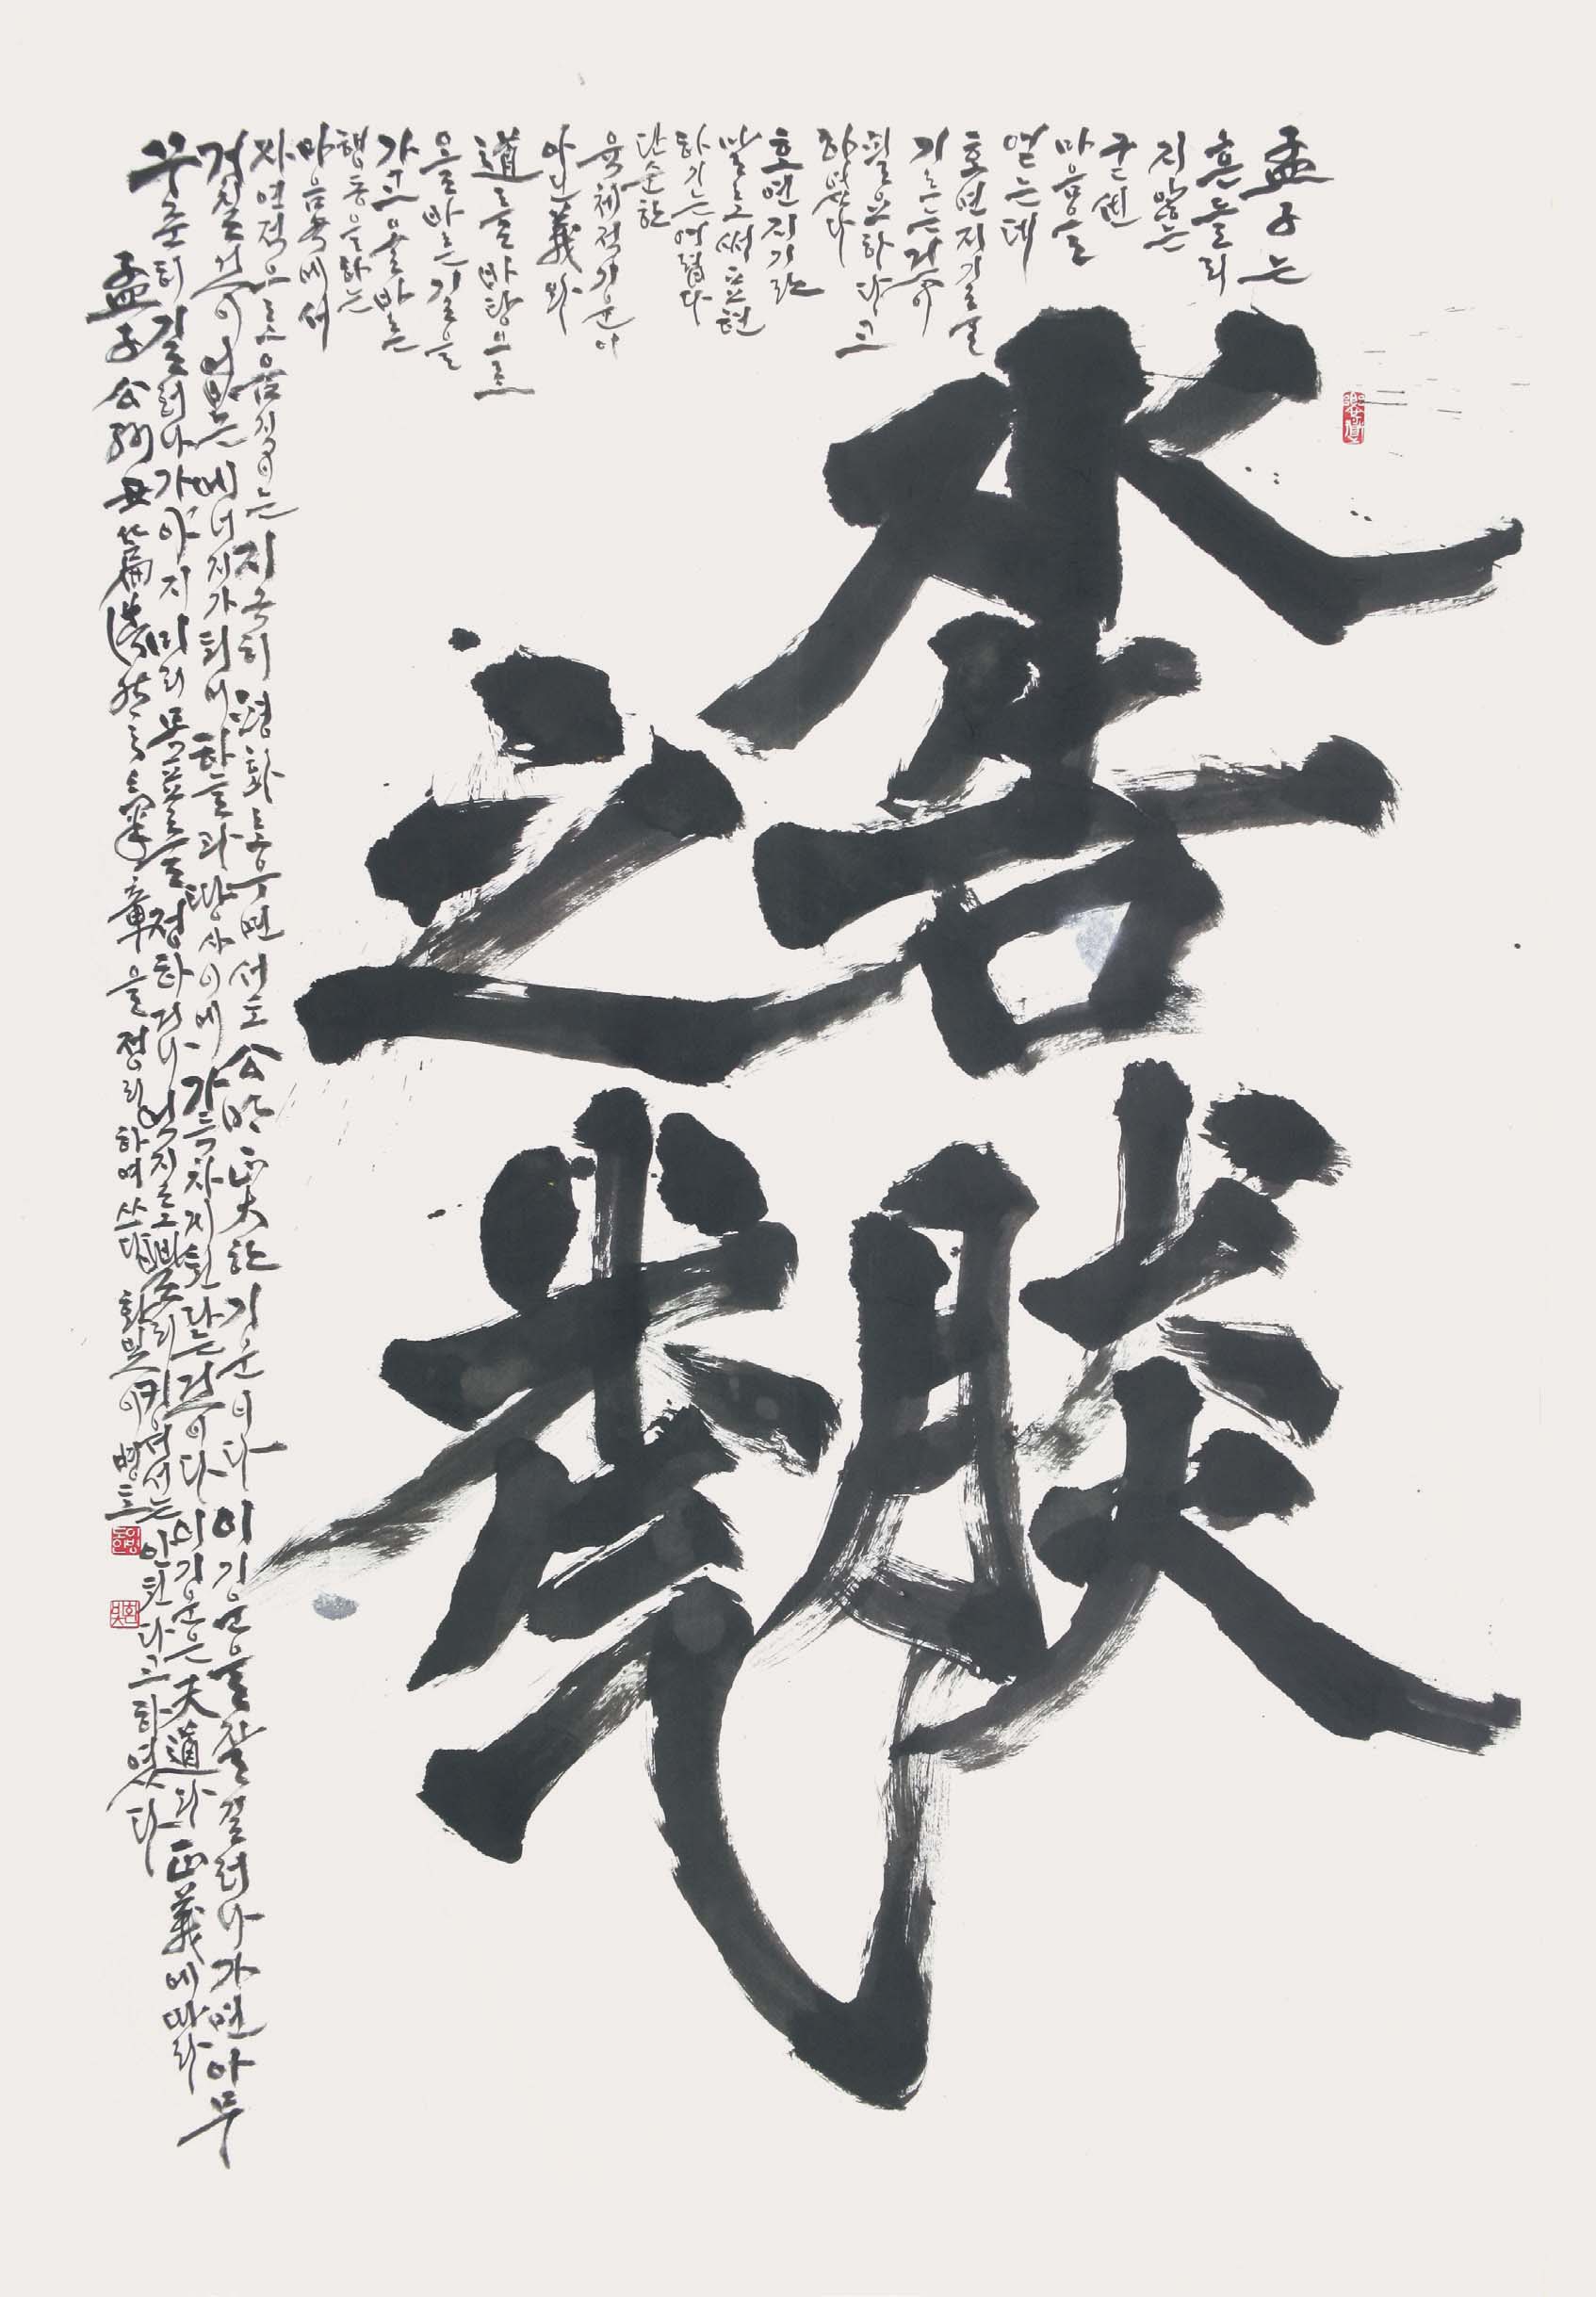 浩然
之氣
孟子는
흔들리
지 않는
굳센
마음을
얻는데
호연지기를
기르는 것이
필요하다고
하였다
호연지기란
말로써 표현
하기는 어렵다
단순한
육체적 기운이
아닌 義와
道를 바탕으로
올바른 길을
가고 올바른
행동을 하는
마음속에서
자연적으로 움직이는 지극히 평화로우면서도 公明正大한 기운이다 이 기운을 잘 길러나가면 아무
거칠 것이 없는 에너지가 되며 하늘과 땅 사이에 가득차게 된다는 것이다 이 기운은 天道와 正義에 따라
꾸준히 길러나가야지 미리 목표를 정하거나 억지로 빨리 키워서는 안된다고 하였다
孟子 公孫丑篇 浩然之氣章을 정리하여 쓰다